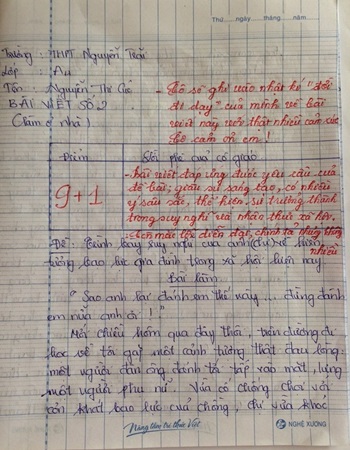 Thứ ngày tháng năm
Trường : THPT Nguyễn Trãi
Lớp : A4
Tên : Nguyễn Thị Gió
BÀI VIẾT SỐ 2
(Làm ở nhà)
- Cô sẽ ghi vào nhật kí "đời
đi dạy" của mình về bài
viết này với thật nhiều cảm xúc
Cô cảm ơn em!
Điểm
Lời phê của cô giáo
9 + 1
- Bài viết đáp ứng được yêu cầu của
đề bài, giàu sự sáng tạo, có nhiều
ý sâu sắc, thể hiện sự trưởng thành
trong suy nghĩ và nhận thức xã hội.
- Còn mắc lỗi diễn đạt, chính tả nhưng không
nhiều
Đề : Trình bày suy nghĩ của anh (chị) về hiện
tượng bạo lực gia đình trong xã hội hiện nay
Bài làm
" Sao anh lại đánh em thế này ... đừng đánh
em nữa anh ơi ! "
Mới chiều hôm qua đây thôi, trên đường đi
học về tôi gặp một cảnh tượng thật đau lòng
một người đàn ông đánh tá tấp vào mặt, lưng
một người phụ nữ. Vừa cố chống chọi với
cơn khát bạo lực của chồng, chị vừa khóc
Nâng tầm tri thức Việt
NGHỆ XƯƠNG